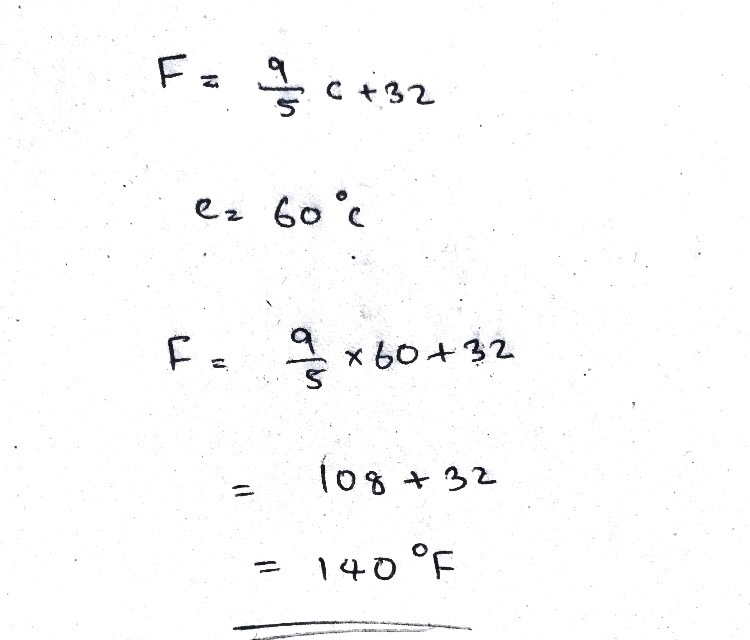 F = 9/5 c + 32
c = 60°c
F = 9/5 × 60 + 32
= 108 + 32
= 140°F